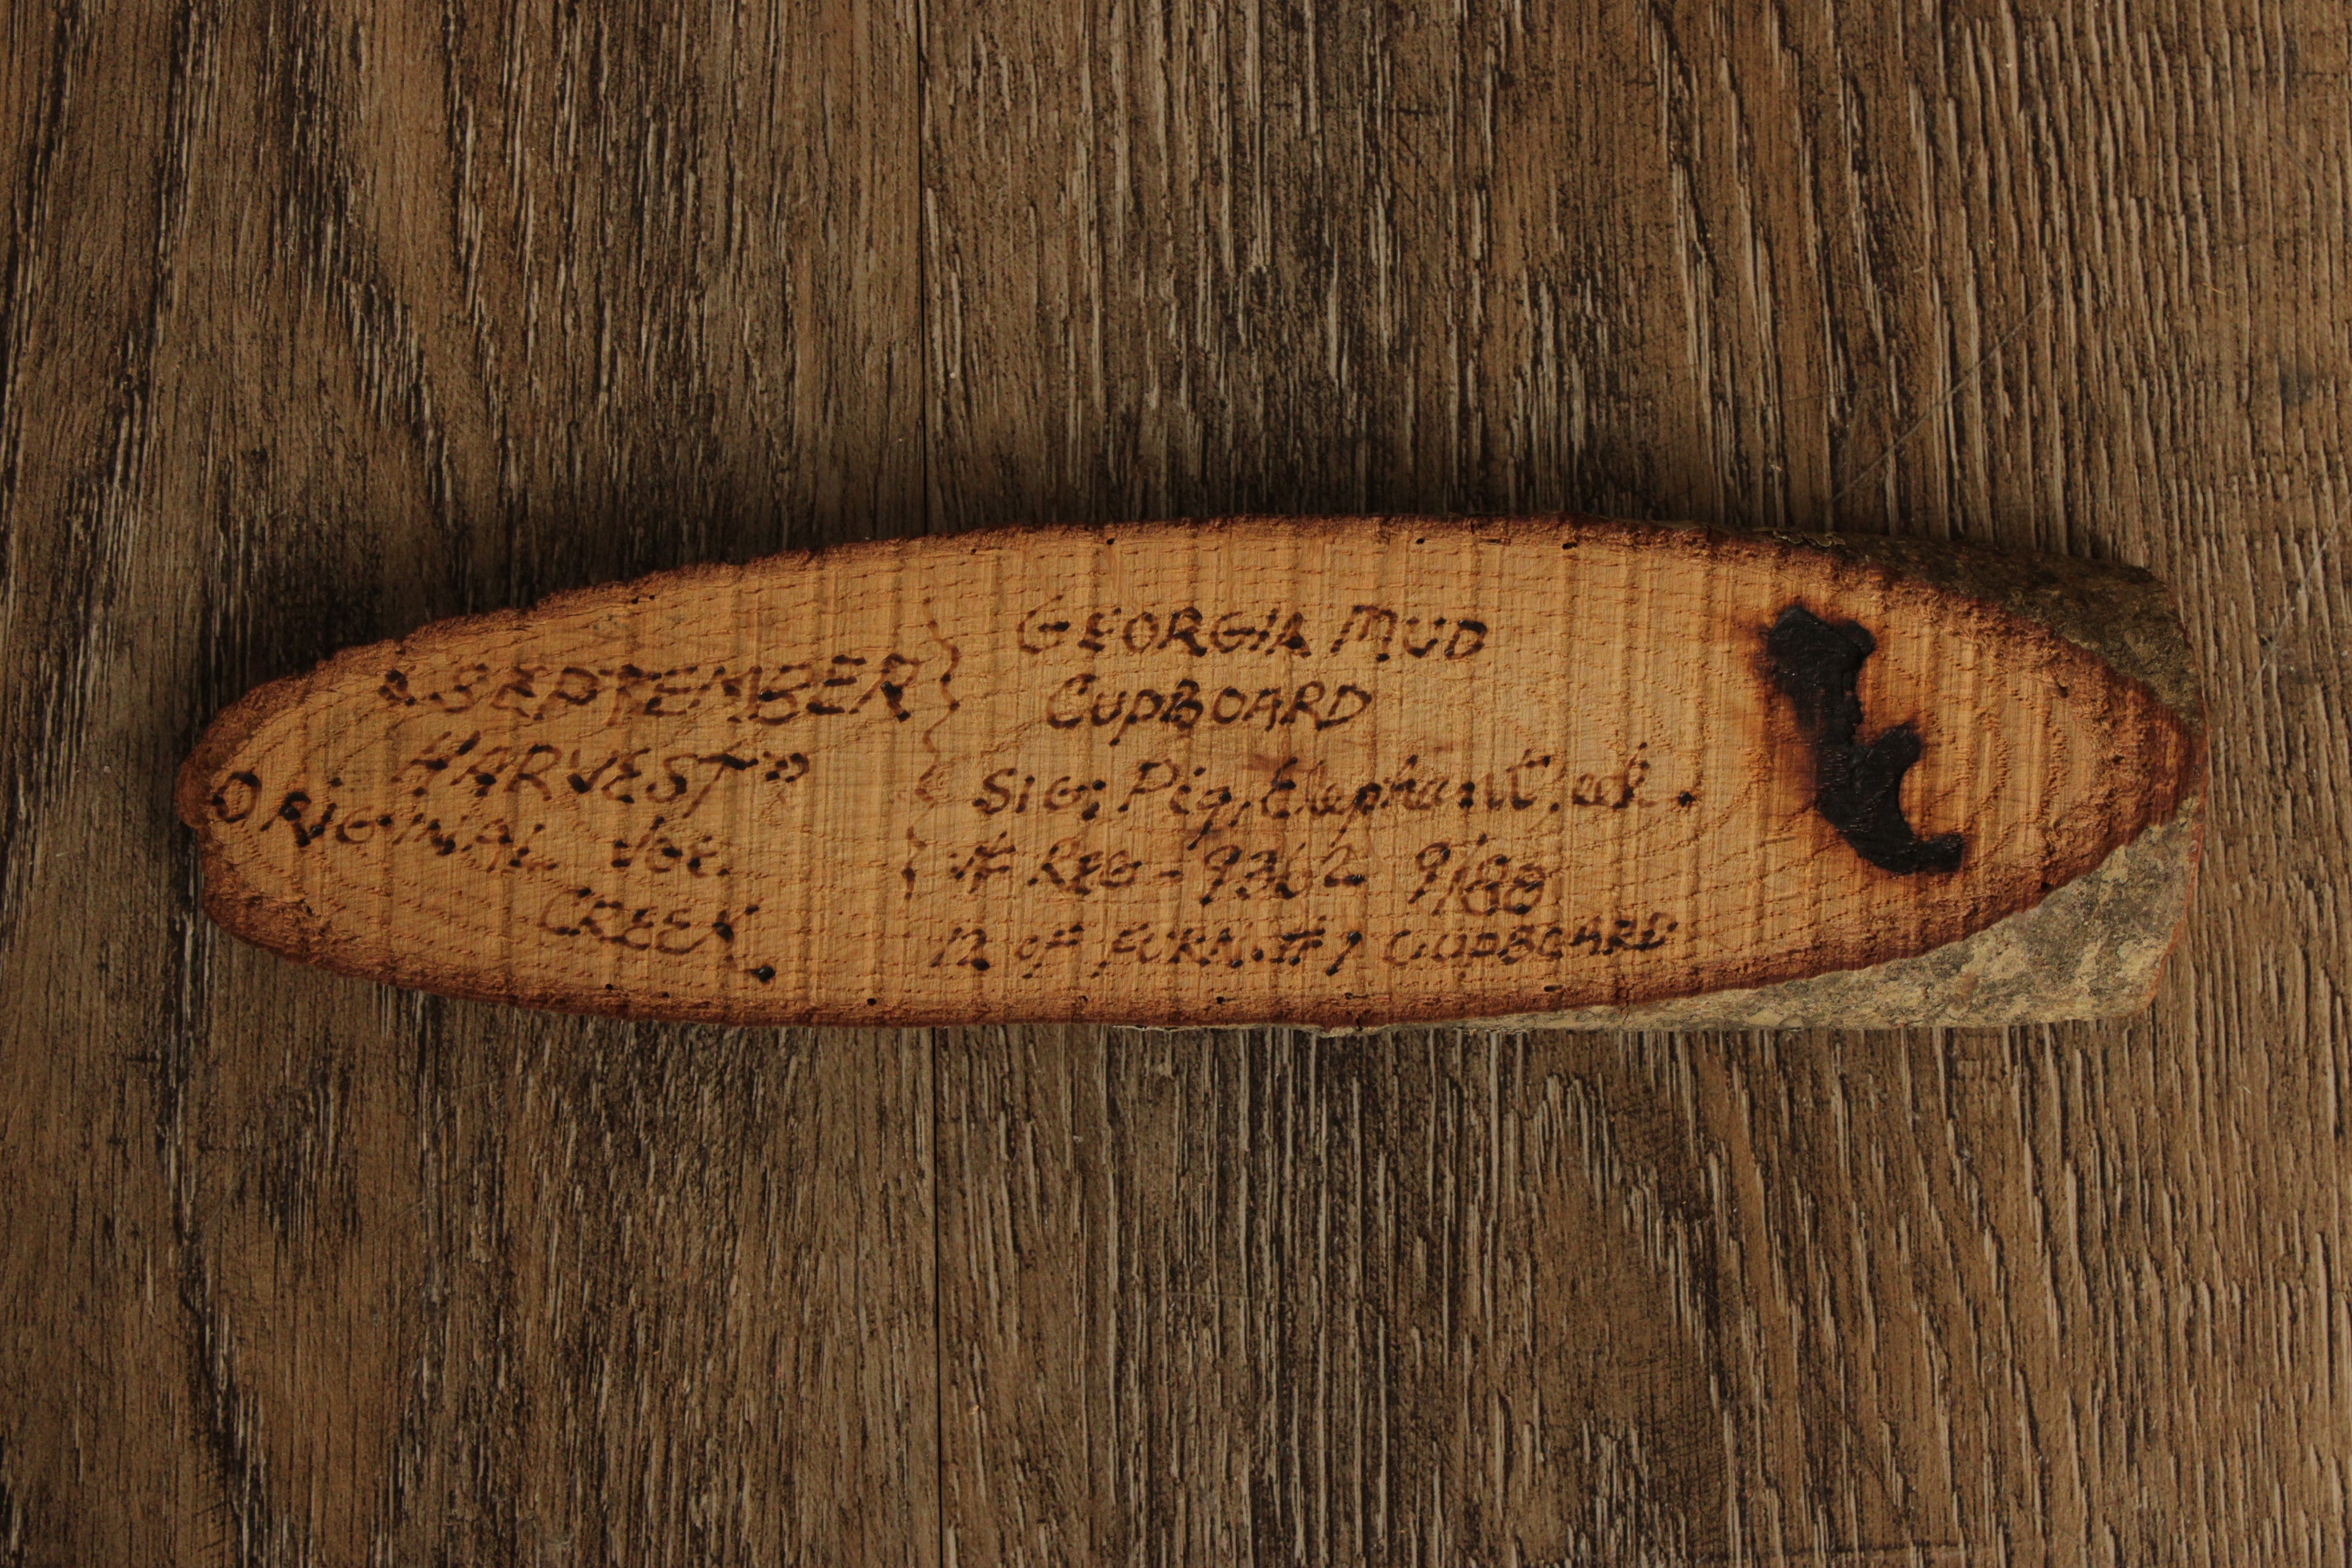 SEPTEMBER
HARVEST'D
ORIGINAL
CREEK
GEORGIA MUD
CUPBOARD
SIG; Pig, Elephant,
# REG - 9362 9/88
12 of FURN. #1 CUPBOARD